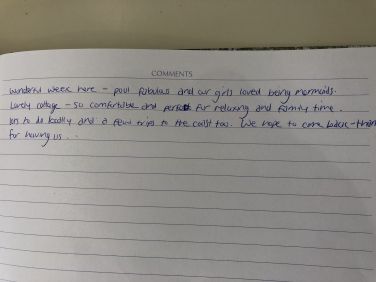 COMMENTS
Wonderful week here - pool fabulous and our girls loved being mermaids.
Lovely cottage - so comfortable and perfect for relaxing and family time.
lots to do locally and a few trips to the coast too. We hope to come back - thank
for having us.